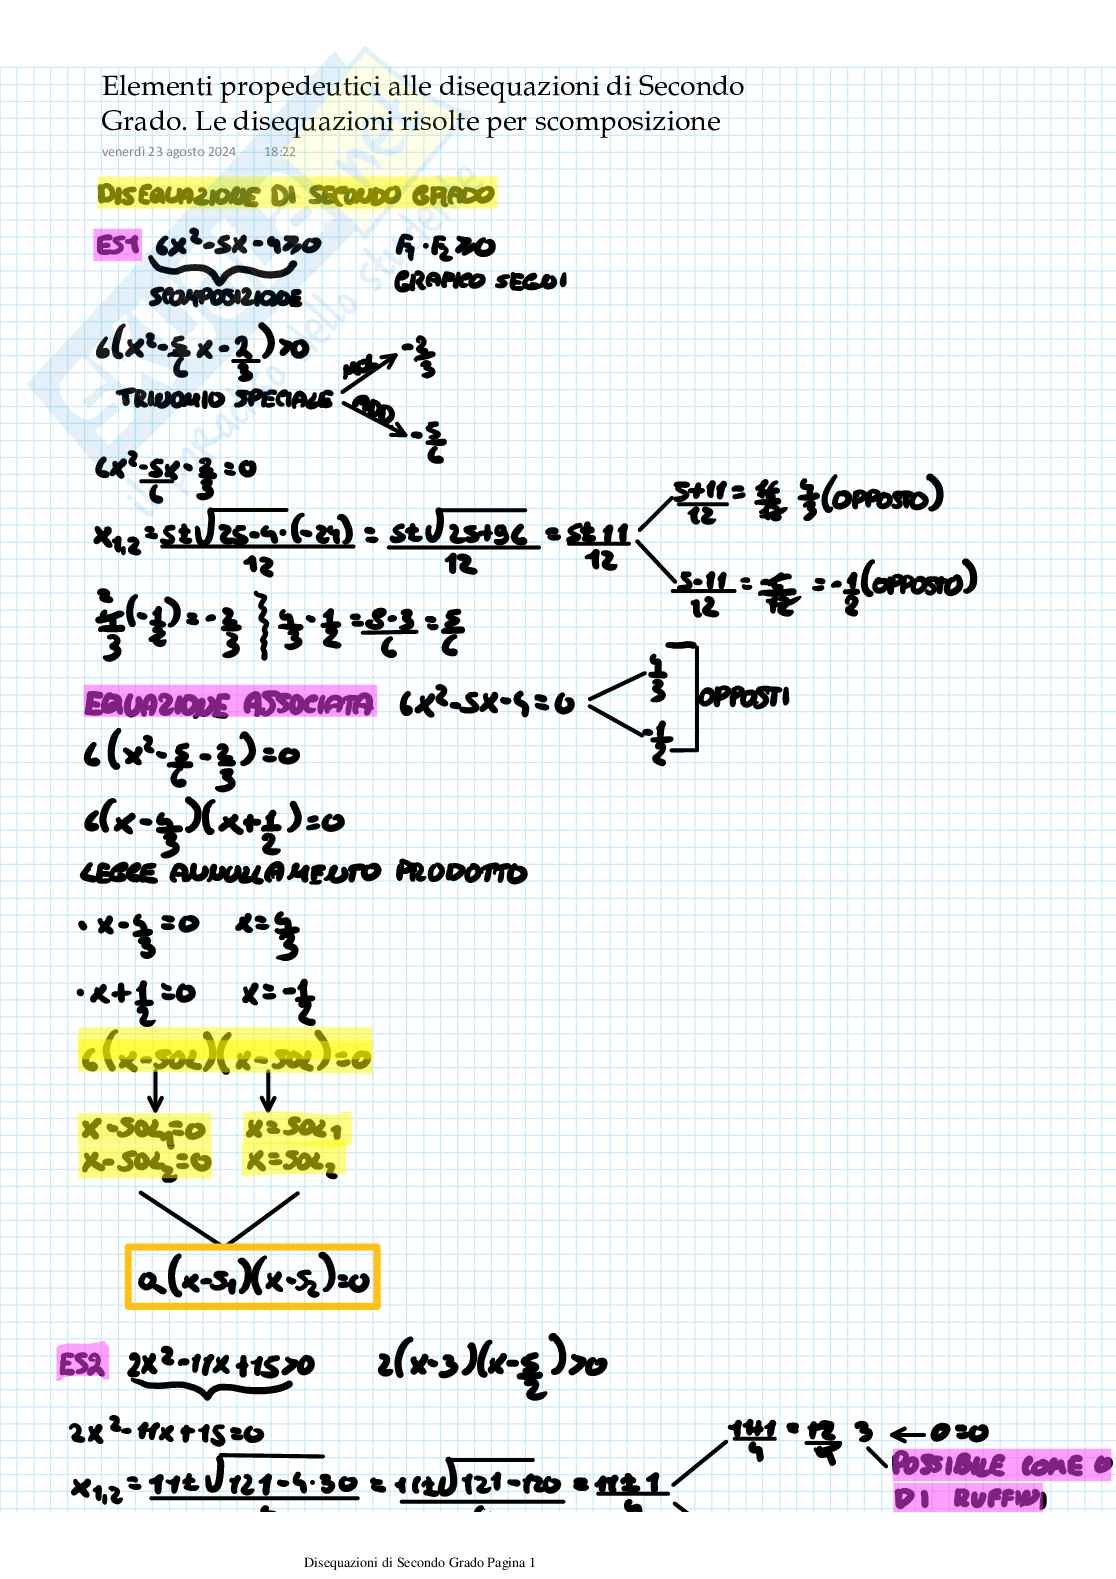 Elementi propedeutici alle disequazioni di Secondo
Grado. Le disequazioni risolte per scomposizione
venerdì 23 agosto 2024 18:22
DISEQUAZIONE DI SECONDO GRADO
ES1 6x²-5x-4≥0 F₁·F₂≥0
SCOMPOSIZIONE GRAFICO SEGNI
6(x²-5/6 x-2/3)>0 -2/3
TRINOMIO SPECIALE ADD -5/6
6x²-5x/6-2/3=0
x₁,₂=5±√25-4·(-24)/12 = 5±√25+96/12 = 5±11/12 5+11/12=16/12 4/3(OPPOSTO)
5-11/12=-6/12=-1/2(OPPOSTO)
4/3(-1/2)=-2/3 4/3-1/2=5-3/6=5/6
EQUAZIONE ASSOCIATA 6x²-5x-4=0 4/3 -1/2 OPPOSTI
6(x²-5/6-2/3)=0
6(x-4/3)(x+1/2)=0
LEGGE ANNULLAMENTO PRODOTTO
·x-4/3=0 x=4/3
·x+1/2=0 x=-1/2
6(x-SOL)(x-SOL)=0
x-SOL₁=0 x=SOL₁
x-SOL₂=0 x=SOL₂
a(x-S₁)(x-S₂)=0
ES2 2x²-11x+15>0 2(x-3)(x-5/2)>0
2x²-11x+15=0
x₁,₂=11±√121-4·30 = 11±√121-120 = 11±1/4 11+1/4=12/4 3 ← 0=0
POSSIBILE COME
DI RUFFINI
Disequazioni di Secondo Grado Pagina 1